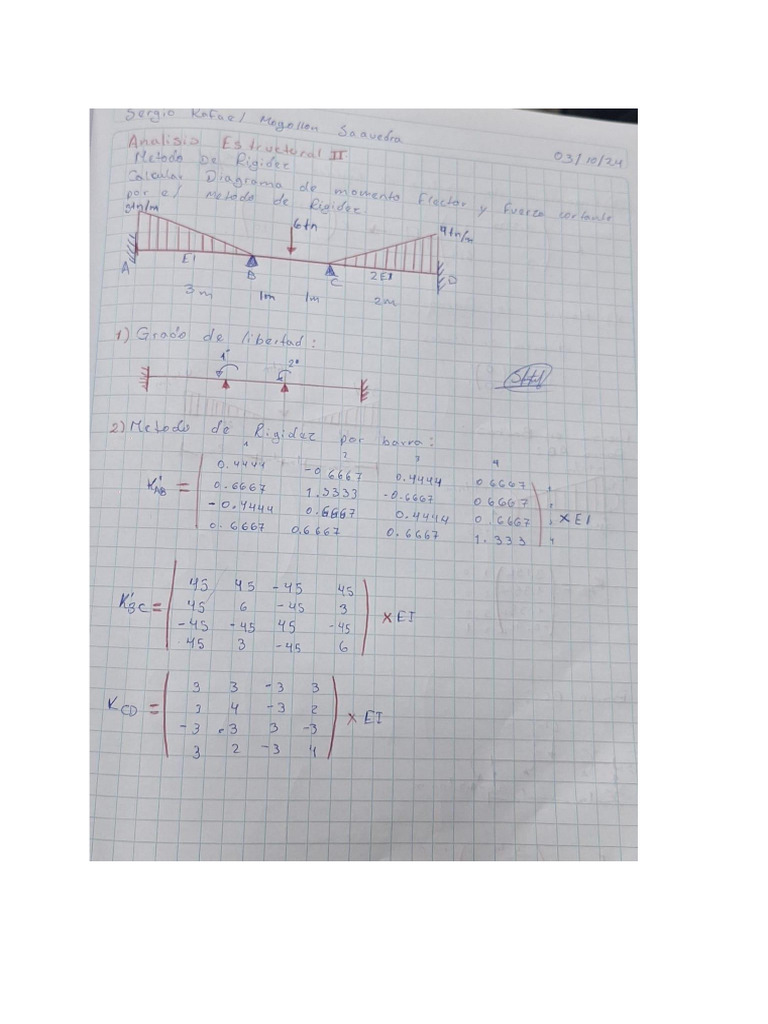 Sergio Rafael Mogollon Saavedra
03/10/24
Analisis Estructural II
Metodo De Rigidez
Calcular Diagrama de momento Flector y Fuerza cortante
por el Metodo de Rigidez
9tn/m
6tn
9tn/m
A EI B C 2EI D
3m 1m 1m 2m
1) Grado de libertad:
1° 2°
2) Metodo de Rigidez por barra:
1 2 3 4
K'AB = 0.4444 -0.6667 0.4444 0.6667 1
0.6667 1.3333 -0.6667 0.6667 2
-0.4444 0.6667 0.4444 0.6667 3 x EI
0.6667 0.6667 0.6667 1.333 4
K'BC = 45 45 -45 45
45 6 -45 3
-45 -45 45 -45
45 3 -45 6
x EI
KCD = 3 3 -3 3
3 4 -3 2
-3 -3 3 -3
3 2 -3 4
x EI